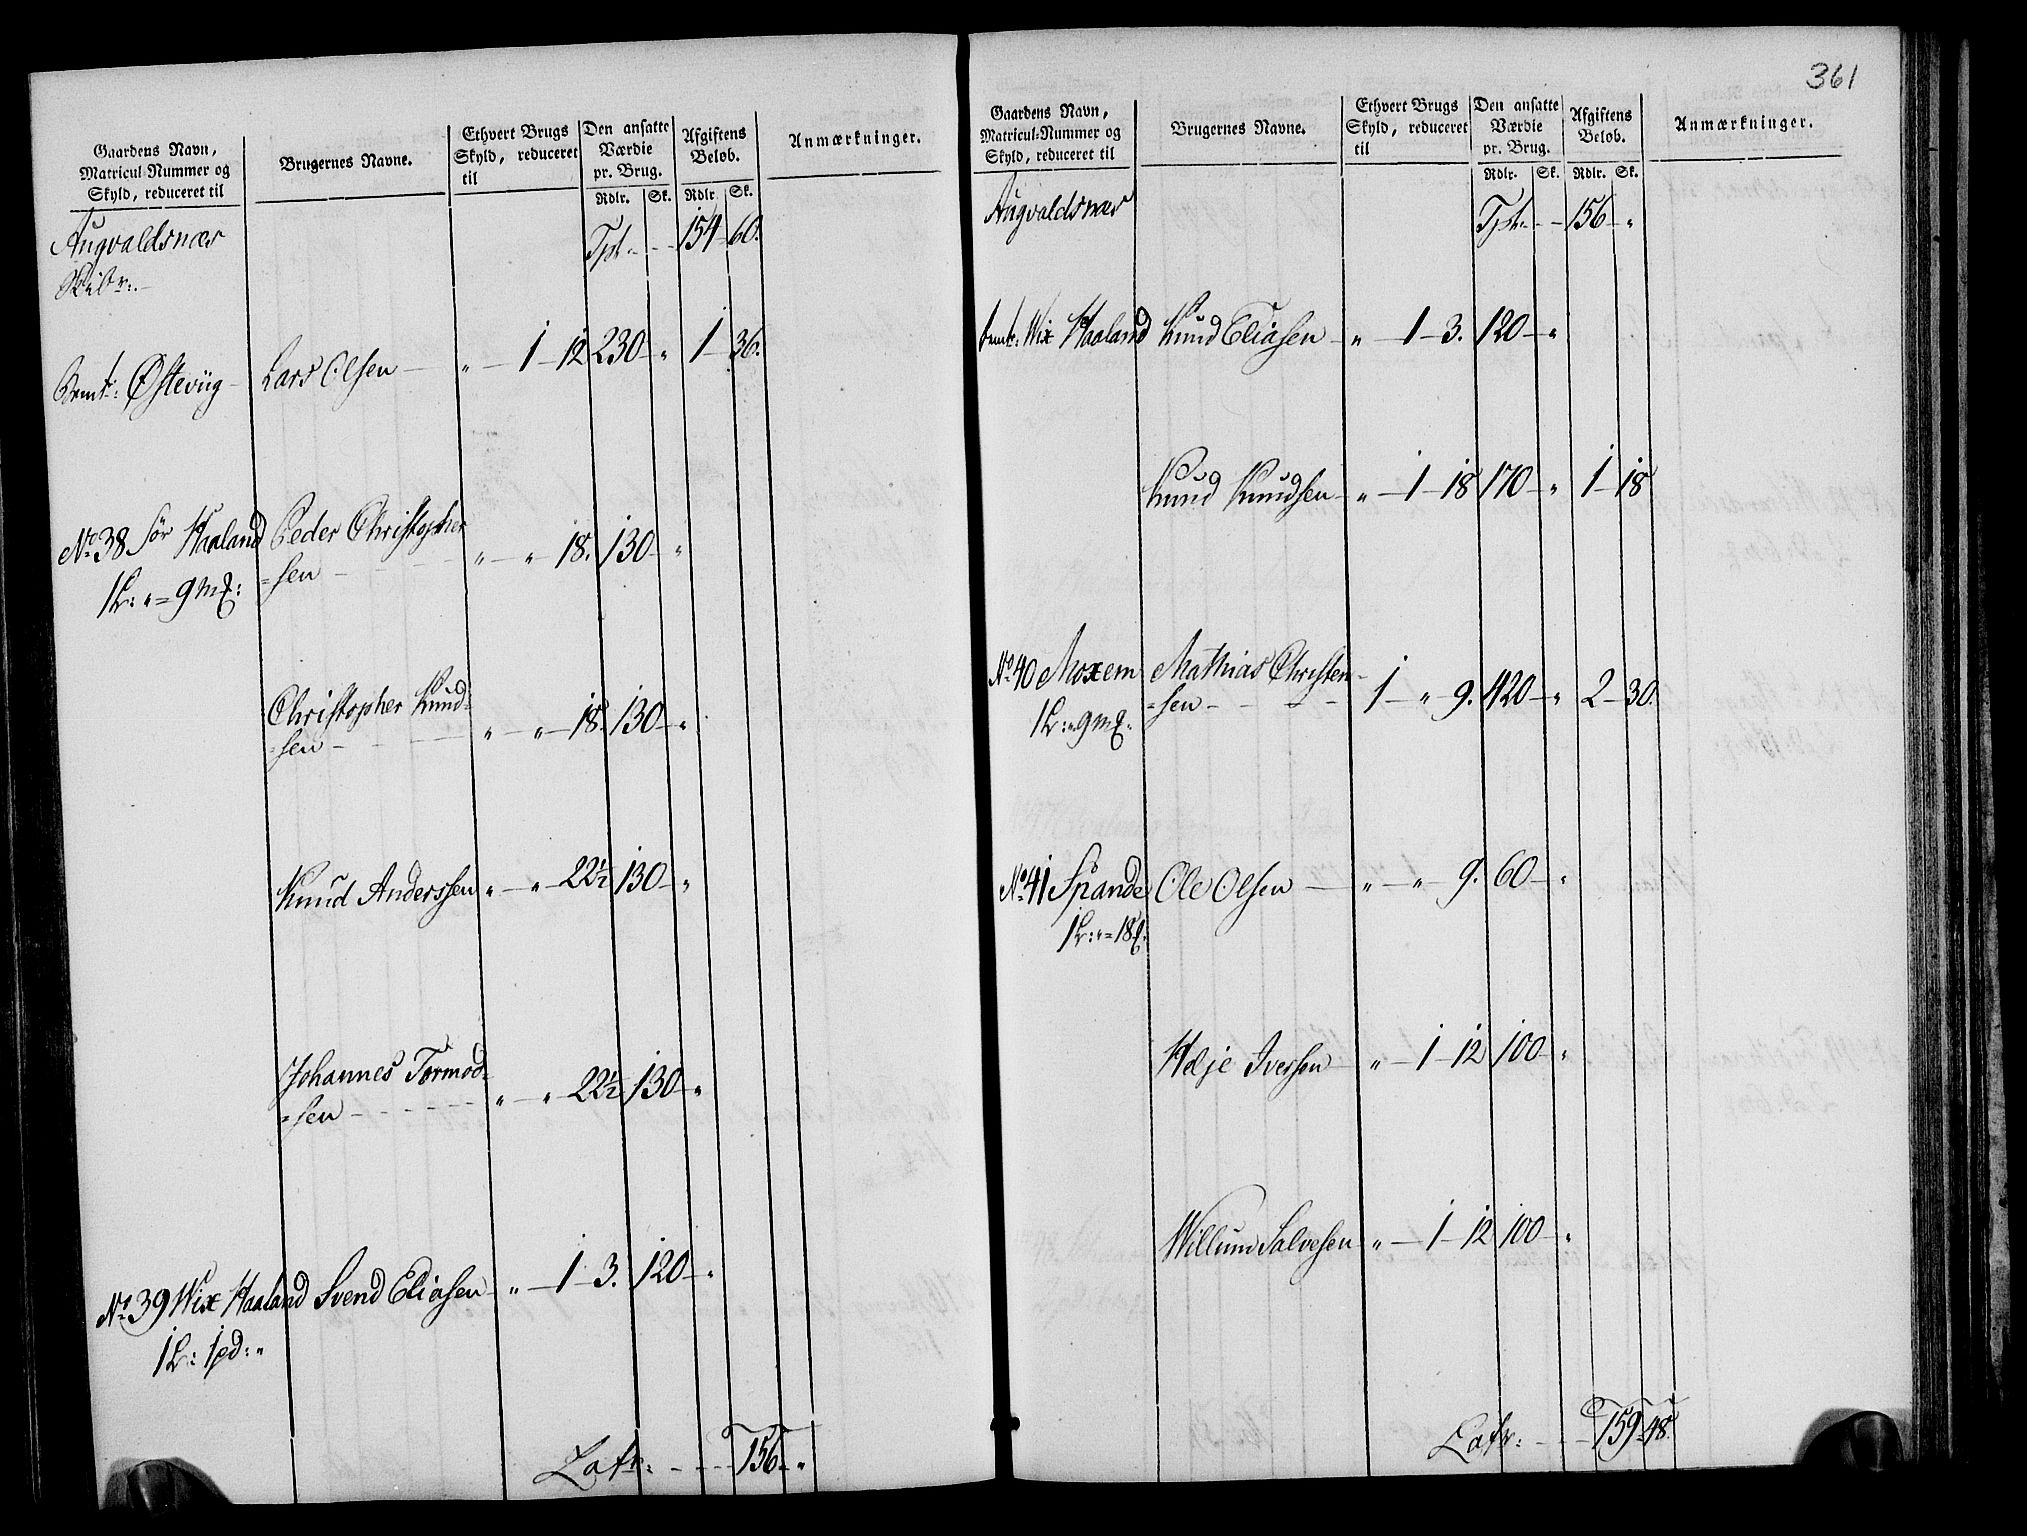 Gaardens Navn,
Matricul-Nummer og
Skyld, reduceret til
Brugernes Navne.
Ethvert Brugs
Skyld, reduceret
til
Den ansatte
Værdie
pr. Brug.
Rdlr. Sk.
Afgiftens
Beløb.
Rdlr Sk.
Anmærkninger.
Augvaldsnæs Tpt. - - 154 - 60.
Skibr:
bemt: Østeviig - Lars Olsen - " - 1 - 12 230 - " 1 - 36.
No 38 Sör Haaland Peder Christopher
=sen - - - " - " 18. 130 - "
1 L: " = 9 mk:
Christopher Knud=
=sen - - " - " - 18. 130 - "
Knud Anderssen " - " - 22½ 130 - "
Johannes Tormod=
=sen - - - - " - " 22½ 130 - "
No 39 Wix Haaland Svend Eliasen - " - 1 - 3. 120 - "
1 L: 1 pd: "
Latr: - - - 156 - "
361
Gaardens Navn,
Matricul-Nummer og
Skyld, reduceret til
Brugernes Navne.
Ethvert Brugs
Skyld, reduceret
til
Den ansatte
Værdie
pr. Brug.
Rdlr. Sk.
Afgiftens
Beløb.
Rdlr. Sk.
Anmærkninger.
Augvaldsnæs Tpt. - - 156 - "
bemt: Wix Haaland Knud Eliasen - " - 1 - 3. 120 - "
Knud Knudsen - " - 1 - 18 170 - " 1 - 18
No 40 Moxem Mathias Christen-
=sen - - - 1 - " 9. 420 - " 2 - 30.
1 L: " 9 mk.
No 41 Spande Ole Olsen - " - " - 9. 60 - "
1 L: " = 18 k:
Helje Iversen - " - 1 - 12 100 - "
Willum Salvesen " - 1 - 12 100 - "
Latr: - - - 159 - 48.